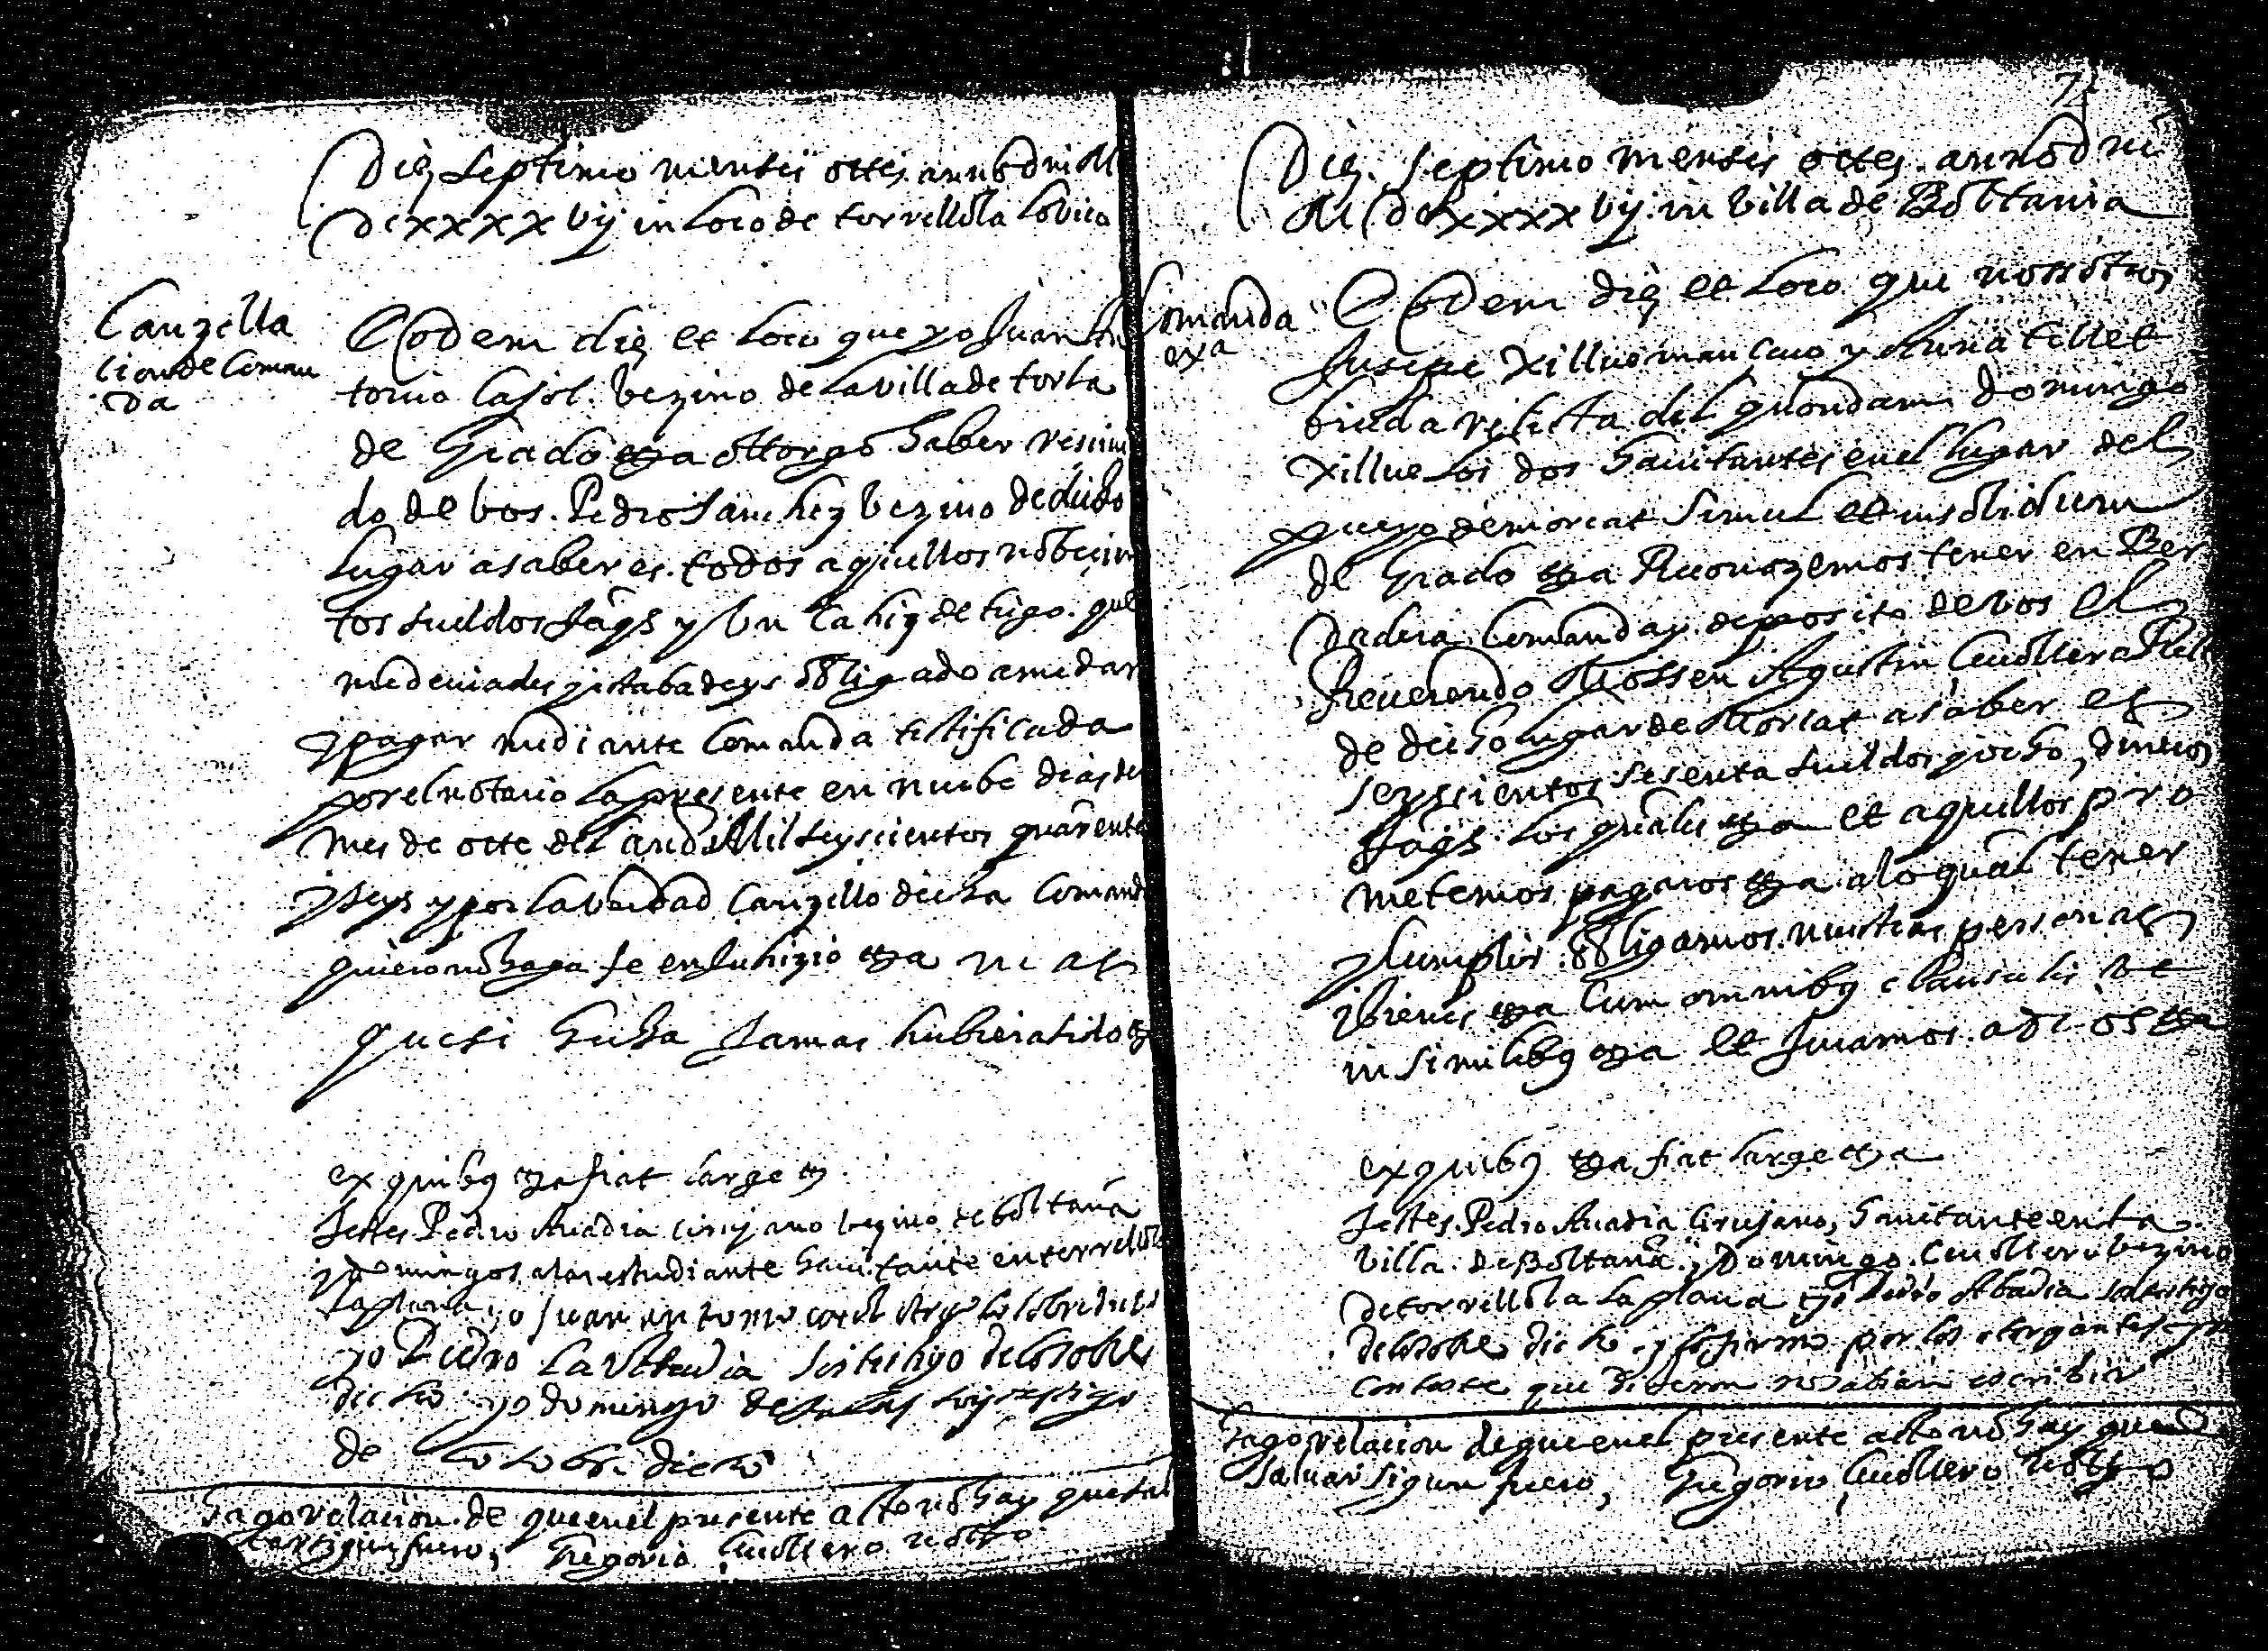 Die septimo mensis octes. anno dni M
DCxxxx vij in loco de torrillola lo vico
Canzella
cion de Coman
da
Eodem die et loco que yo Juan An
tonio Cajol. vezino de la villa de torla
de Grado etta ottorgo haber resciui
do de bos. Pedro Sanchez vezino de dicho
lugar a saber es. todos aquellos nobecien
tos sueldos Jaqs y un cahiz de trigo. que
me deviades y estabadeys obligado a me dar
y pagar mediante Comanda testificada
por el notario la presente en nuebe dias del
mes de octe del año Mil seyscientos quarenta
y seys y por la verdad Canzello dicha Comanda
quiero no haga fe en Juhizio etta mas
que si hecha Jamas hubiera sido et
ex quibus etta fiat large et
testes Pedro Auadia cirujano vezino de boltaña
y Domingo salas estudiante hauitante en torrellola
la plana yo Juan antonio cajol otorgo lo sobredicho
yo Pedro la Abadia soy testigo de lo sobre
dicho yo domingo de salas soy testigo
de lo sobre dicho
Hago relacion de que en el presente acto no hay que sal
bar sigun fuero, Gregorio Cuello not
7
Die. septimo mensis octes. anno dni
M DCxxxx vij. in villa de Boltania
Comanda
exa
Eodem die et loco que nosotros
Jusepe Xillue mancebo y Anna tellet
biuda relicta del quondam domingo
Xillue los dos hauitantes en el lugar del
pueyo de morcat simul et insolidum
de Grado etta Reconozemos tener en Ber
dadera Comanda y deposito de bos el
Reuerendo Mossen Agustin Cuello Retor
de dicho lugar de Morcat a saber es
seyscientos sesenta sueldos y ocho, dineros
Jaqs. los quales etta et aquellos pro
metemos pagaros etta a lo qual tener
y cumplir. obligamos. nuestras personas
y bienes etta Cum omnibus clausulis ut
in similibus etta et Juramos. a dios etta
ex quibus etta fiat large etta
testes. Pedro Auadia Cirujano, hauitante en la
villa. de Boltaña, y Domingo. Cuello vezino
de torrellola la plana yo Pedro Abadia soy testigo
de lo sobre dicho y lo firmo por los otorgantes y
contoste que dixeron no sabian escribir
Hago relacion de que en el presente acto no hay que
saluar sigun fuero, Gregorio Cuello notro